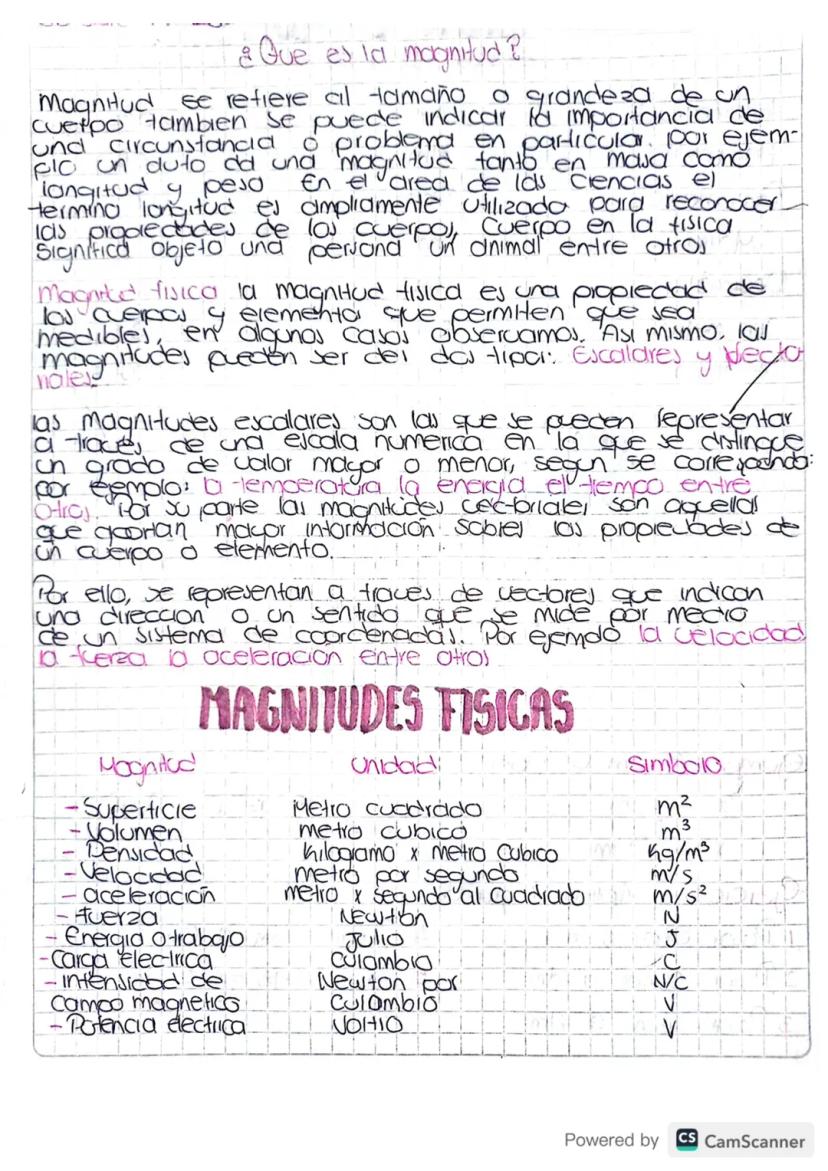 ¿Que es la magnitud?
Magnitud se refiere al tamaño o grandeza de un
cuerpo tambien se puede indicar la importancia de
una circunstancia o problema en particular. por ejem-
plo un duto da una magnitud tanto en masa como
longitud y peso En el area de las ciencias el
termino longitud es ampliamente utilizado para reconocer
las propiedades de los cuerpos, Cuerpo en la fisica
Significa objeto una persona un animal entre otros
Magnitud fisica la magnitud fisica es una propiedad de
los cuerpos y elementos que permiten que sea
medibles, en algunos casos observamos. Asi mismo, las
magnitudes pueden ser del dos tipos: Escalares y Vecto
riales
las Magnitudes escalares son las que se pueden representar
a traves de una escala numerica en la que se distingue
un grado de valor mayor o menor, segun se corresponda:
por ejemplo: la temperatura la energia el tiempo entre
otras. Por su parte las magnitudes vectoriales son aquellas
que aportan mayor información sobres las propiedades de
un cuerpo o elemento.
Por ello, se representan a traves de vectores que indican
una direccion o un sentido que se mide por medio
de un sistema de coordenadas. Por ejemplo la velocidad
la fuerza la aceleracion entre otros
MAGNITUDES FISICAS
Magnitud Unidad Simbolo
- Superficie Metro cuadrado m²
- Volumen metro cubico m³
- Densidad kilogramo x metro Cubico kg/m³
- Velocidad metro por segundo m/s
- aceleración metro x segundo al cuadrado m/s²
- fuerza Newton N
- Energia o trabajo Julio J
- Carga electrica Culombio C
- intensidad de Newton por N/C
Campo magnetico Culombio V
- Potencia electrica Voltio V
Powered by CS CamScanner